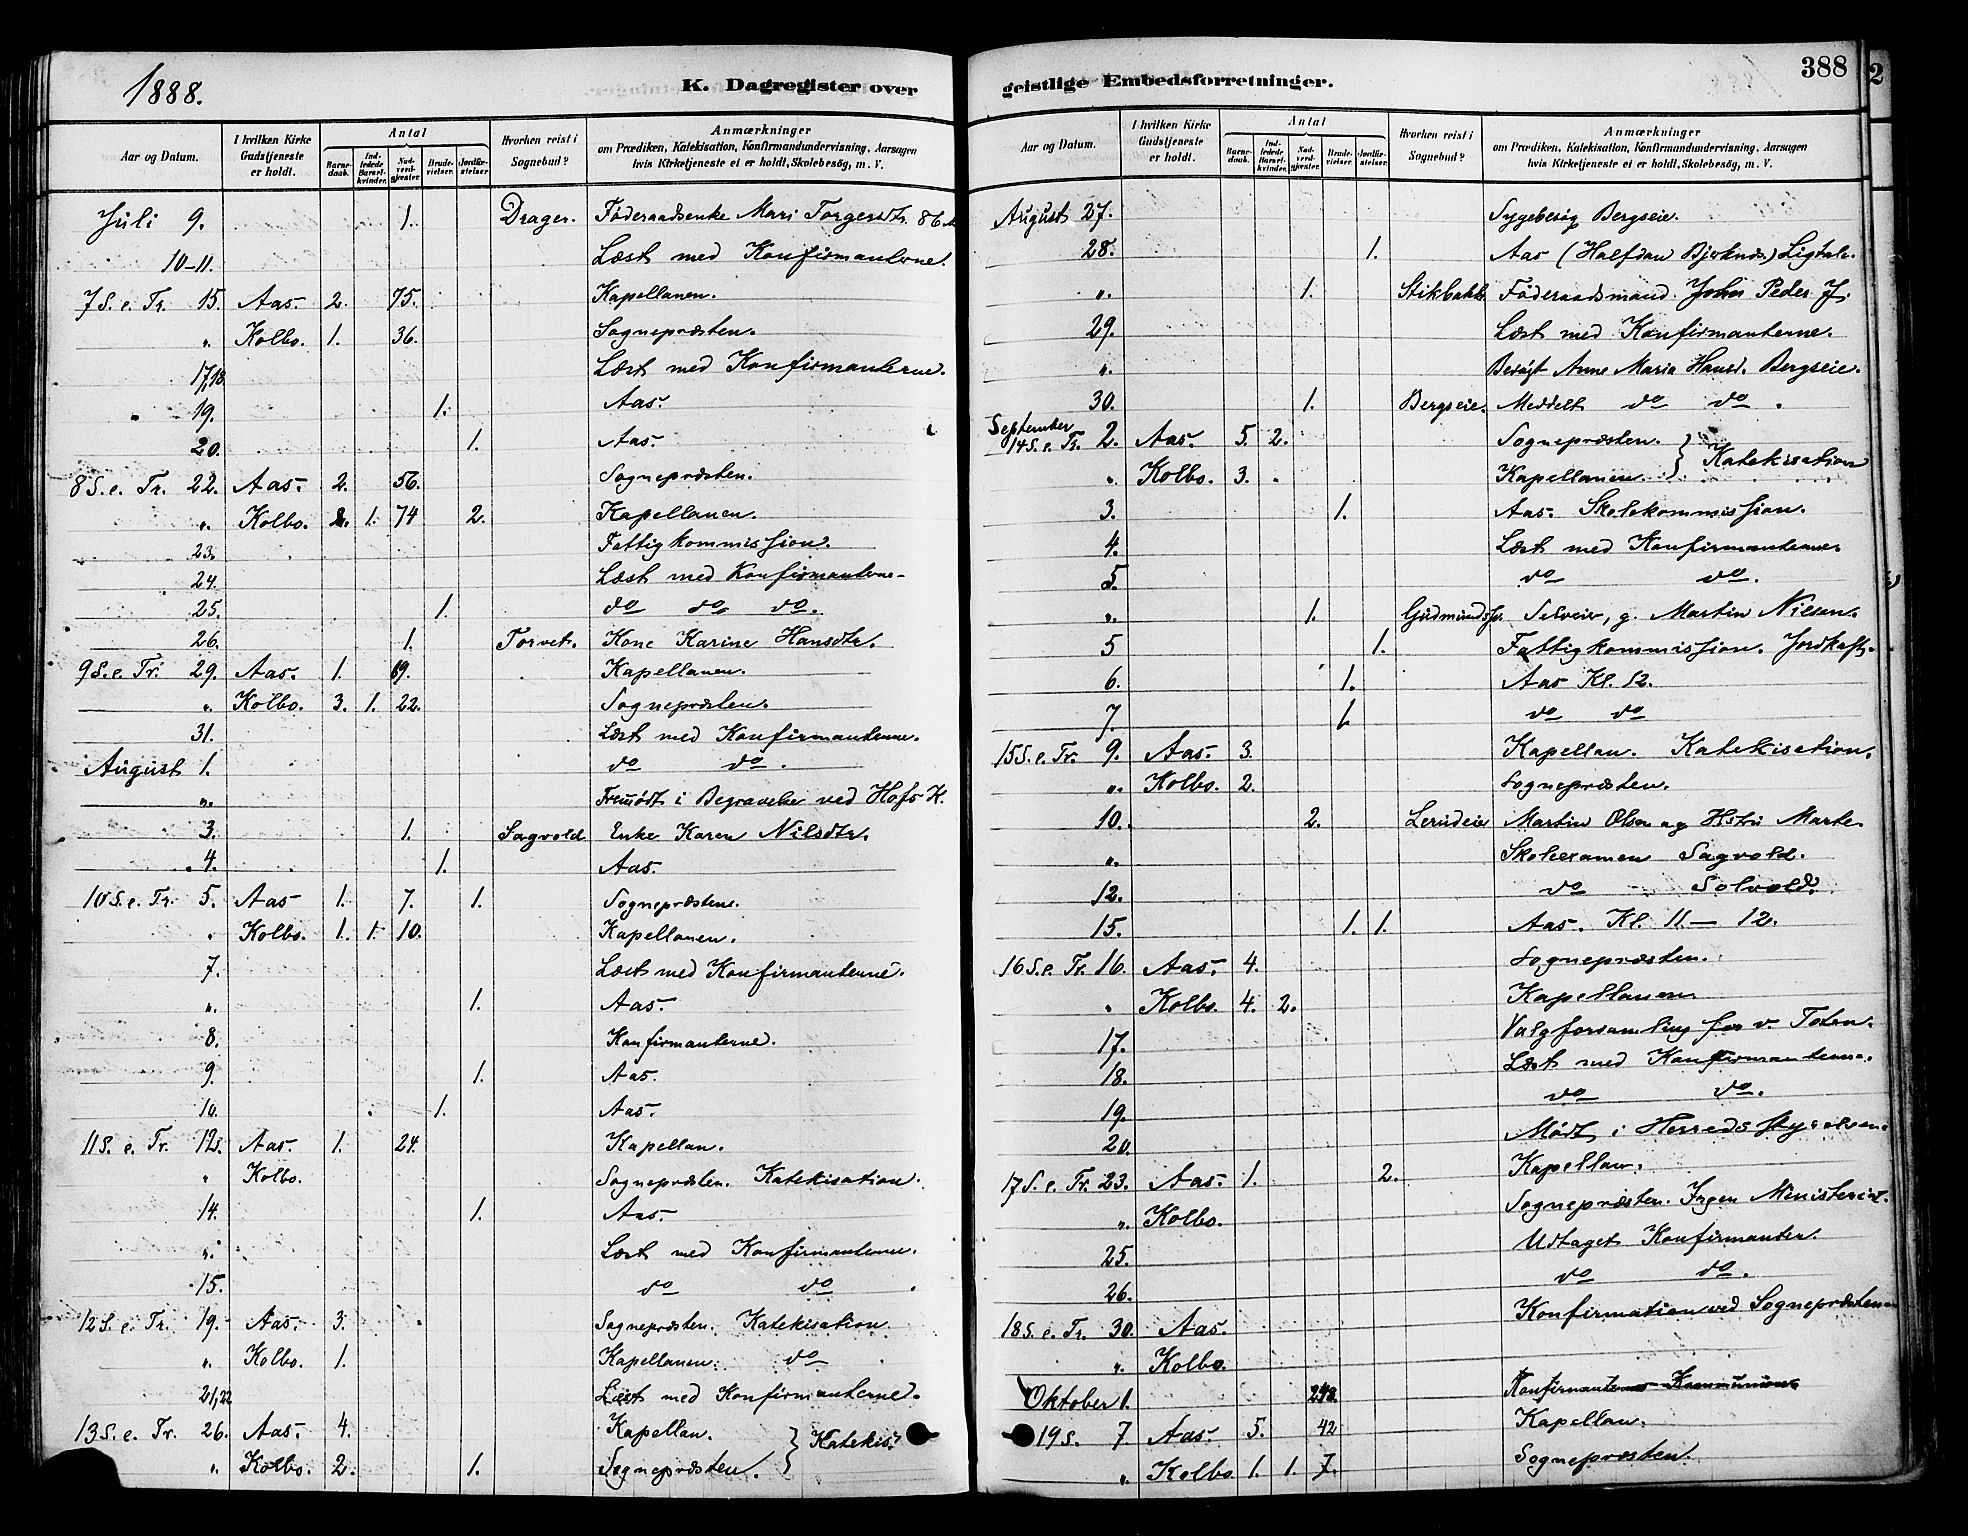 1888.
K. Dagregister over
Aar og Datum. I hvilken Kirke Gudstjeneste er holdt. Antal Barnedaab. Indledede Barselkvinder. Nadverdgjæster. Brudevielser. Jordfæstelser. Hvorhen reist i Sognebud? Anmærkninger om Prædiken, Katekisation, Konfirmandundervisning, Aarsagen hvis Kirketjeneste ei er holdt, Skolebesög, m. V.
Juli 9. 1. Drager. Föderaadsenke Mari Torgersdtr. 86
10-11. Læst med Konfirmanterne.
7 S. e. Tr. 15. Aas. 2. 75. Kapellanen.
" Kolbo. 1. 36. Sognepræsten.
17,18. Læst med Konfirmanterne.
19. 1. Aas.
20. 1. Aas.
8 S. e. Tr. 22. Aas. 2. 56. Sognepræsten.
" Kolbo. 1. 74 2. Kapellanen.
23. Fattigkommission.
24. Læst med Konfirmanterne
25. 1. do do do.
26. 1. Torvet. Kone Karine Hansdtr.
9 S. e. Tr. 29. Aas. 1. 69. Kapellanen.
" Kolbo. 3. 1. 22. Sognepræsten.
31. Læst med Konfirmanterne.
August 1. do do.
" Fremödt i Begravelse ved Hofs K.
3. 1. Sagvold Enke Karen Nilsdtr.
4. 1. Aas.
10 S. e. Tr. 5. Aas 1. 7. 1. Sognepræsten.
" Kolbo. 1. 1. 10. Kapellanen.
7. Læst med Konfirmanterne.
" 1. Aas.
8. Konfirmanterne.
9. 1. Aas.
10. 1. Aas.
11 S. e. Tr. 12. Aas. 1. 24. Kapellan.
" Kolbo. Sognepræsten. Katekisation.
14. 1. Aas.
" Læst med Konfirmanterne.
15. do do
12 S. e. Tr. 19. Aas. 3. Sognepræsten. Katekisation
" Kolbo. 1. Kapellanen. do
21,22 Læst med Konfirmanterne.
13 S. e. Tr. 26. Aas. 4. Kapellan. } Katekis.
" Kolbo. 2. 1. Sognepræsten.
geistlige Embedsforretninger. 388
2
Aar og Datum. I hvilken Kirke Gudstjeneste er holdt. Antal Barnedaab. Indledede Barselkvinder. Nadverdgjæster. Brudevielser. Jordfæstelser. Hvorhen reist i Sognebud? Anmærkninger om Prædiken, Katekisation, Konfirmandundervisning, Aarsagen hvis Kirketjeneste ei er holdt, Skolebesög, m. V.
August 27. Sygebesög Bergseie.
28. 1. Aas (Halfdan Ligtale.
" 1. Stikbakke Föderaadsmand Johs Peder J.
29. Læst med Konfirmanterne.
" Besögt Anne Maria Hansd. Bergseie.
30. 1. Bergseie. Meddelt do do.
September
14 S. e. Tr. 2. Aas. 5. 2. Sognepræsten. } Katekisation
" Kolbo. 3. Kapellanen.
3. 1. Aas. Skolekommission.
4. Læst med Konfirmanterne.
5. do do.
" 1. Selveier, g. Martin Nilsen.
5 1. Fattigkommission. Jordkast.
6. 1. Aas Kl. 12.
7. 1. do do
15 S. e. Tr. 9. Aas. 3. Kapellan. Katekisation.
" Kolbo. 2. Sognepræsten.
10. 2. Lerudeie Martin Olsen og Hstru Marte.
" Skoleexamen Sagvold.
12. do Solvold.
15. 1. 1. Aas. Kl. 11 — 12.
16 S. e. Tr. 16. Aas. 4. Sognepræsten.
" Kolbo. 4. 2. Kapellanen
17. Valgforsamling for v. Toten.
18. Læst med Konfirmanterne.
19. do do.
20. Mödt i Herredsstyrelsen.
17 S. e. Tr. 23. Aas. 1. 2. Kapellan.
" Kolbo. Sognepræsten. Ingen Ministerial.
25. Udtaget Konfirmanter.
26. do do.
18 S. e. Tr. 30. Aas. Konfirmation ved Sognepræsten
" Kolbo.
Oktober 1. Konfirmanternes Kommunion
19 S. 7. Aas. 5. 42 Kapellan.
" Kolbo 1. 1. 7. Sognepræsten.